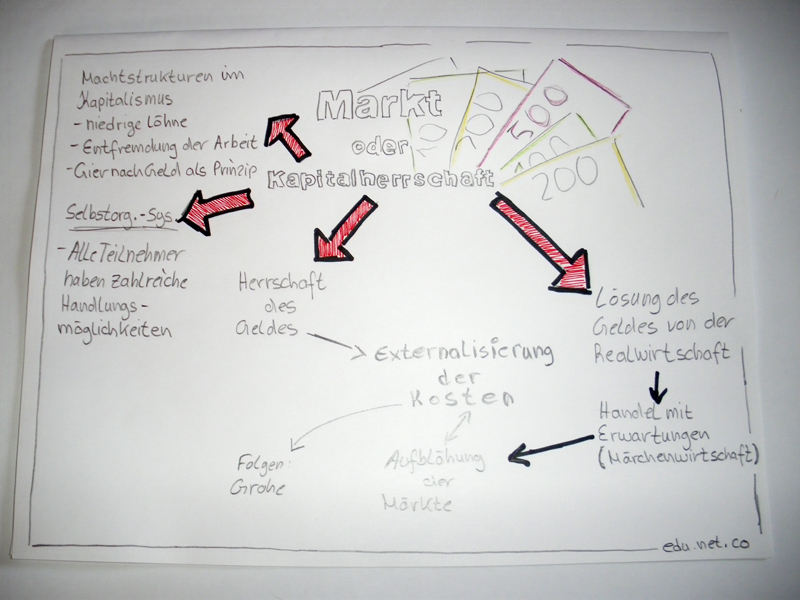 Markt
oder
Kapitalherrschaft
100
200
500
100
200
Machtstrukturen im
Kapitalismus
- niedrige Löhne
- Entfremdung der Arbeit
- Gier nach Geld als Prinzip
Selbstorg.-Sys.
- Alle Teilnehmer
haben zahlreiche
Handlungs-
möglichkeiten
Herrschaft
des
Geldes
Externalisierung
der
Kosten
Folgen:
Große
Aufblähung
der
Märkte
Lösung des
Geldes von der
Realwirtschaft
Handel mit
Erwartungen
(Märchenwirtschaft)
edu.net.co